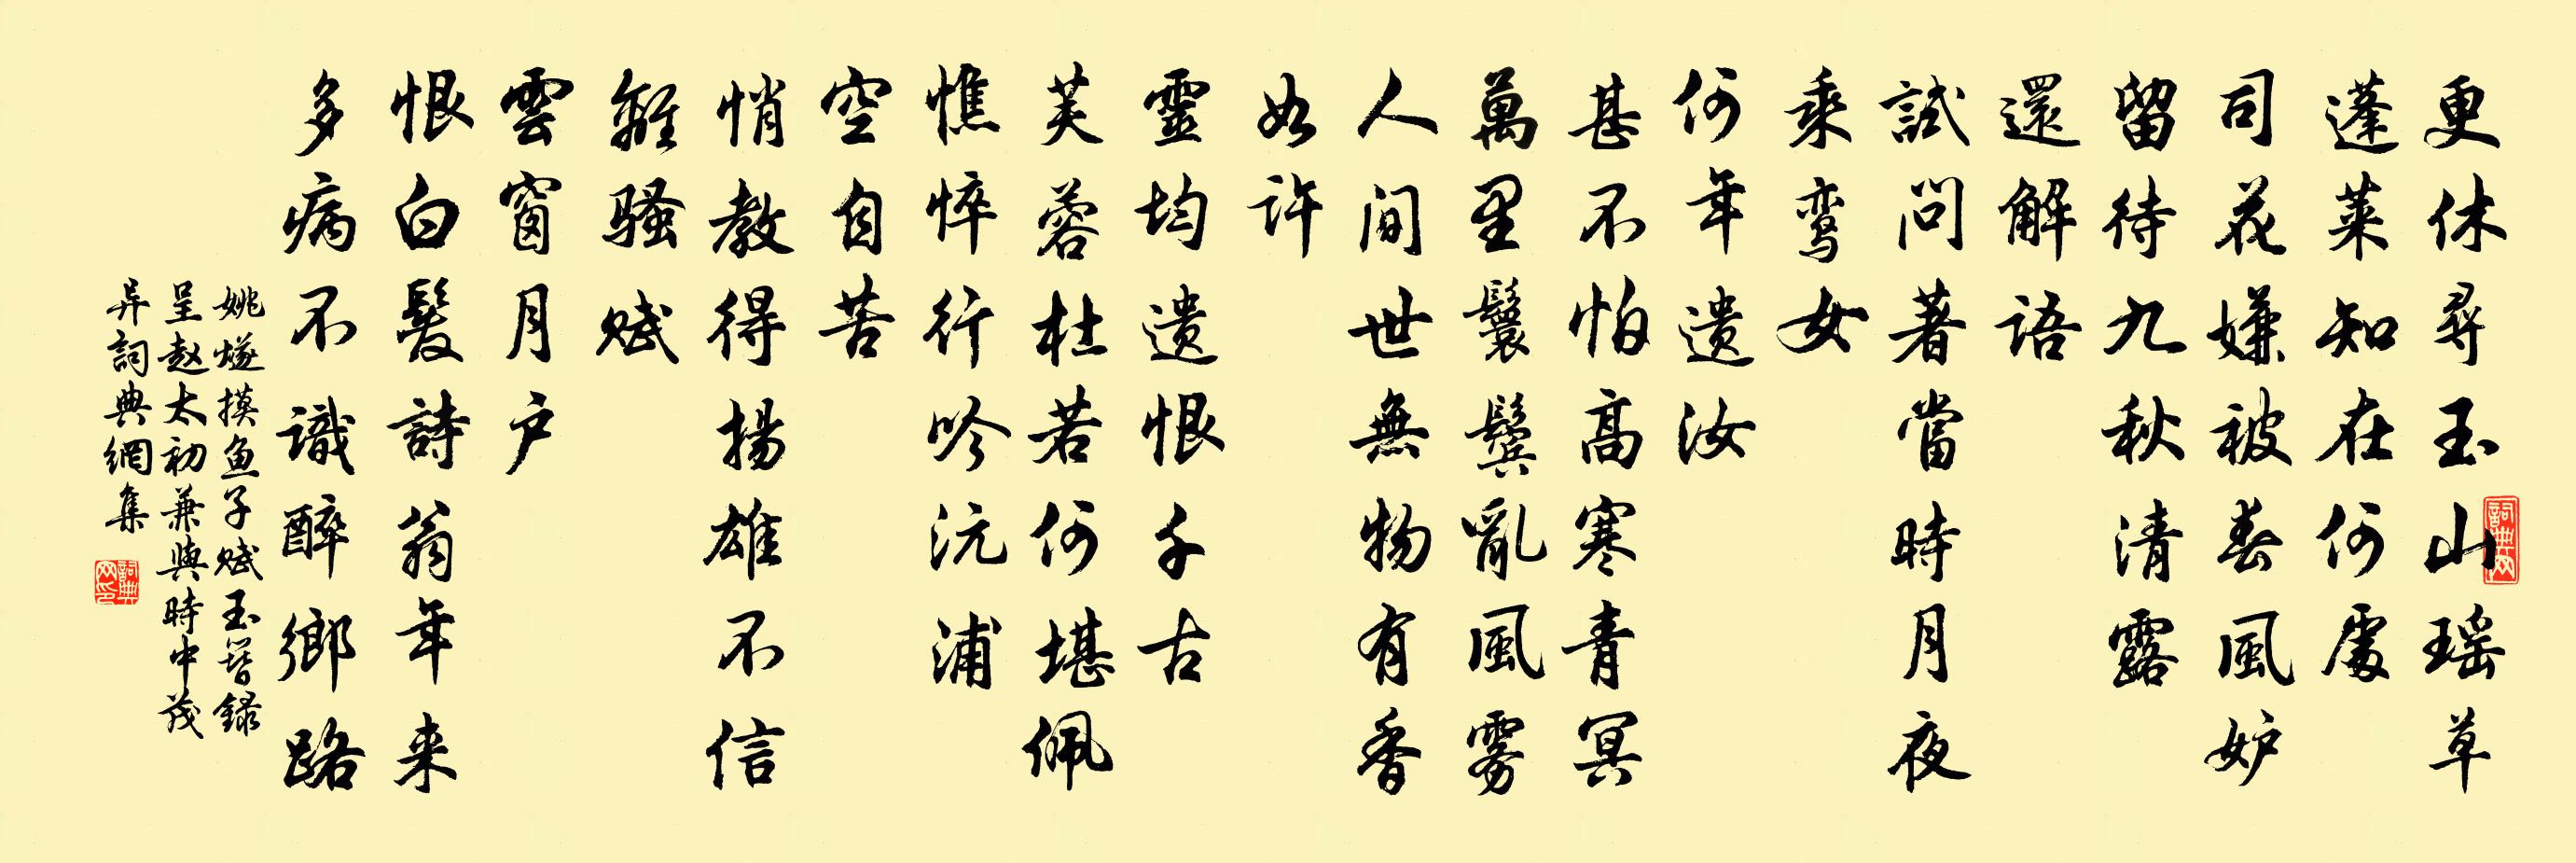 更休尋玉山瑶草
蓬莱知在何處
司花嫌被春風妒
留待九秋清露
還解语
試问著當時月夜
乘鸾女
何年遗汝
甚不怕高寒青冥
萬里鬟鬢亂風雾
人间世無物有香
如许
靈均遗恨千古
芙蓉杜若何堪佩
憔悴行吟沅浦
空自苦
悄教得揚雄不信
離骚赋
雲窗月户
恨白髮詩翁年来
多病不識醉鄉路
姚燧摸鱼子赋玉簪録
呈赵太初兼與時中茂
异詞典網集
詞典网
詞典网印